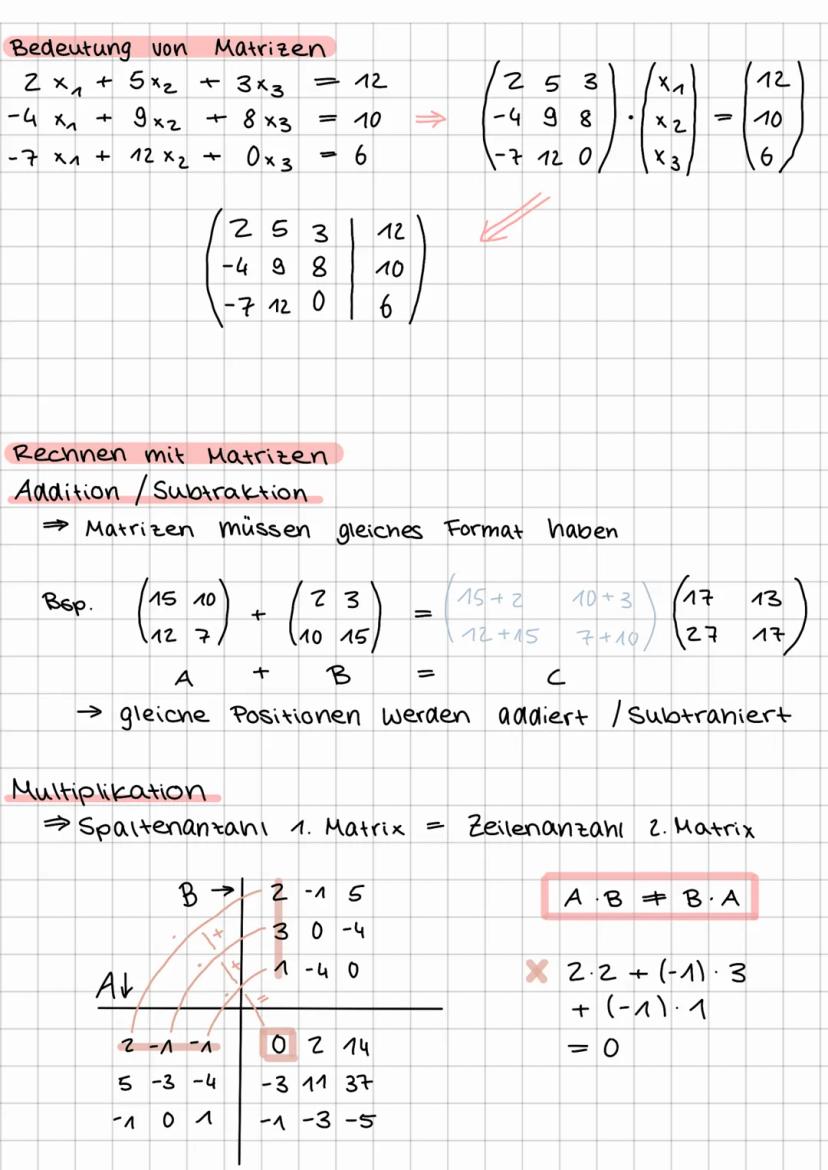 Bedeutung von Matrizen
2 x₁ + 5x₂ + 3x₃ = 12
-4 x₁ + 9x₂ + 8x₃ = 10 ⇒
-7 x₁ + 12x₂ + 0x₃ = 6
(2 5 3) (x₁) (12)
(-4 9 8) · (x₂) = (10)
(-7 12 0) (x₃) (6)
(2 5 3 | 12)
(-4 9 8 | 10)
(-7 12 0 | 6)
Rechnen mit Matrizen
Addition / Subtraktion
⇒ Matrizen müssen gleiches Format haben
Bsp. (15 10) + (2 3) = (15+2 10+3) (17 13)
(12 7) (10 15) (12+15 7+10) (27 17)
A + B = C
→ gleiche Positionen werden addiert / Subtrahiert
Multiplikation
⇒ Spaltenanzahl 1. Matrix = Zeilenanzahl 2. Matrix
B → 2 -1 5
3 0 -4
1 -4 0
A↓
2 -1 -1 0 2 14
5 -3 -4 -3 11 37
-1 0 1 -1 -3 -5
· + · + · =
A · B ≠ B · A
× 2·2 + (-1)·3
+ (-1)·1
= 0